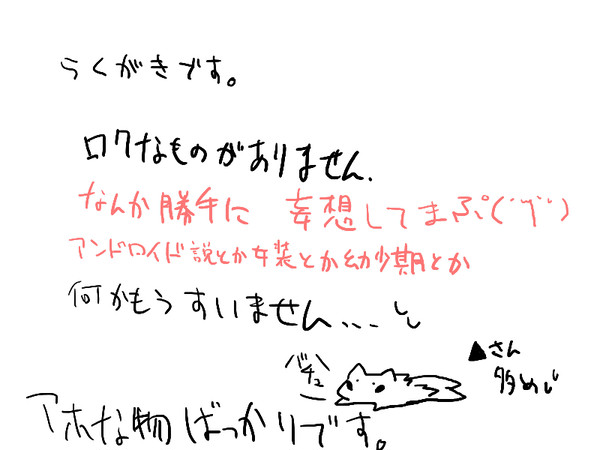 らくがきです。
ロクなものがありません.
なんか勝手に 妄想してまぷ(´Д`)
アンドロイド説とか女装とか幼少期とか
何かもうすいません...
▲さん
多め
バチュ
アホな物ばっかりです。